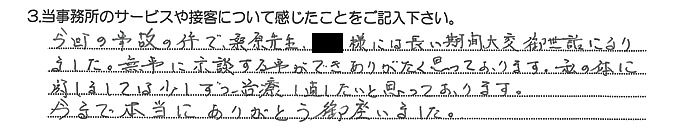 3.当事務所のサービスや接客について感じたことをご記入下さい。
今回の事故の件で桑原先生、 様には長い期間大変御世話になり
ました。無事に示談する事ができありがたく思っております。私の体に
関しましては少しずつ治療し直したいと思っております。
今まで本当にありがとう御座いました。